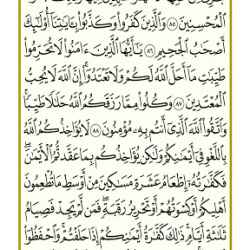 ٱلْمُحْسِنِينَ ٨٥ وَٱلَّذِينَ كَفَرُوا۟ وَكَذَّبُوا۟ بِـَٔايَٰتِنَآ أُو۟لَٰٓئِكَ
أَصْحَٰبُ ٱلْجَحِيمِ ٨٦ يَٰٓأَيُّهَا ٱلَّذِينَ ءَامَنُوا۟ لَا تُحَرِّمُوا۟
طَيِّبَٰتِ مَآ أَحَلَّ ٱللَّهُ لَكُمْ وَلَا تَعْتَدُوٓا۟ إِنَّ ٱللَّهَ لَا يُحِبُّ
ٱلْمُعْتَدِينَ ٨٧ وَكُلُوا۟ مِمَّا رَزَقَكُمُ ٱللَّهُ حَلَٰلًا طَيِّبًا
وَٱتَّقُوا۟ ٱللَّهَ ٱلَّذِىٓ أَنتُم بِهِۦ مُؤْمِنُونَ ٨٨ لَا يُؤَاخِذُكُمُ ٱللَّهُ
بِٱللَّغْوِ فِىٓ أَيْمَٰنِكُمْ وَلَٰكِن يُؤَاخِذُكُم بِمَا عَقَّدتُّمُ ٱلْأَيْمَٰنَ
فَكَفَّٰرَتُهُۥٓ إِطْعَامُ عَشَرَةِ مَسَٰكِينَ مِنْ أَوْسَطِ مَا تُطْعِمُونَ
أَهْلِيكُمْ أَوْ كِسْوَتُهُمْ أَوْ تَحْرِيرُ رَقَبَةٍ فَمَن لَّمْ يَجِدْ فَصِيَامُ
ثَلَٰثَةِ أَيَّامٍ ذَٰلِكَ كَفَّٰرَةُ أَيْمَٰنِكُمْ إِذَا حَلَفْتُمْ وَٱحْفَظُوٓا۟